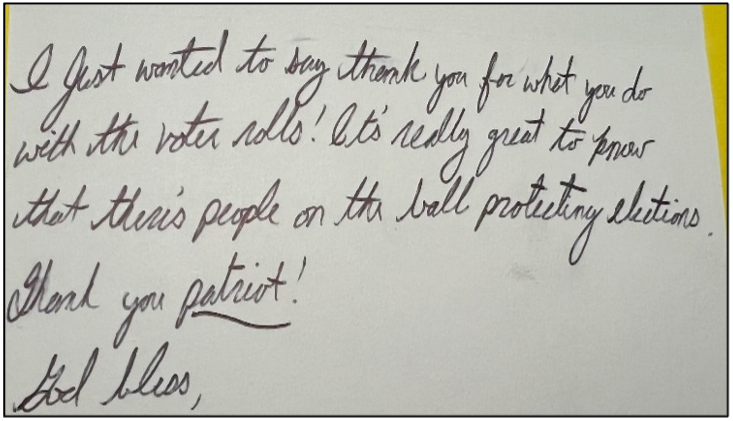 I Just wanted to say thank you for what you do
with the voter rolls! It's really great to know
that there's people on the ball protecting elections.
Thank you patriot!
God bless,